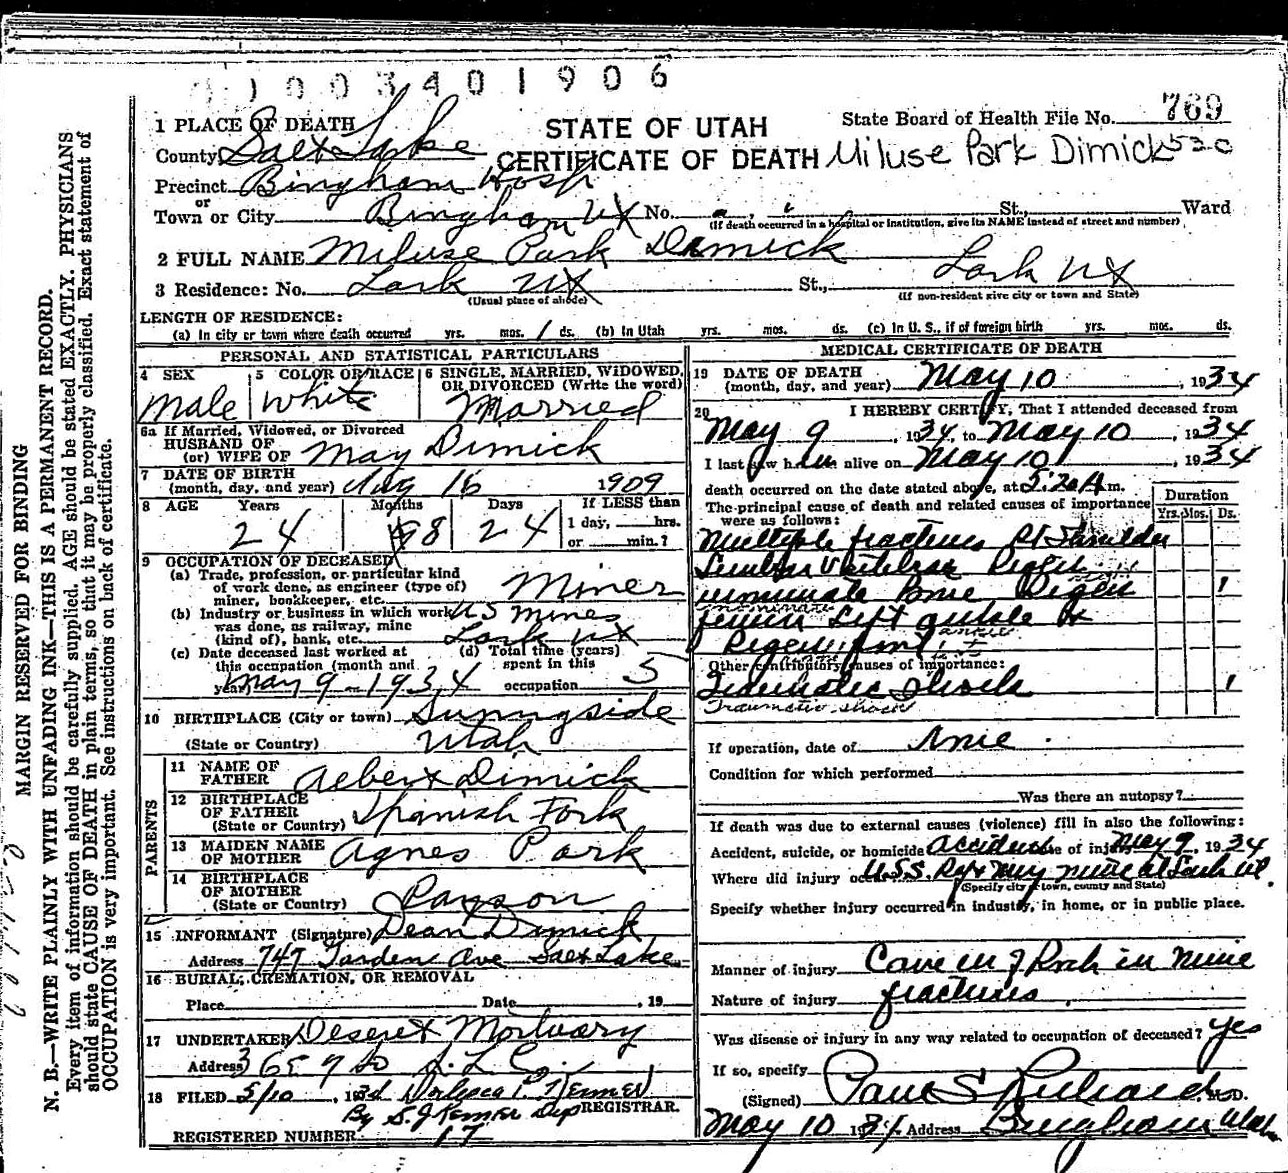 1003401906
1 PLACE OF DEATH
STATE OF UTAH
State Board of Health File No. 769
County Salt Lake
CERTIFICATE OF DEATH Miluse Park Dimick 520
Precinct Bingham Hosp
or
Town or City Bingham UT No. St., Ward
(If death occurred in a hospital or institution, give its NAME instead of street and number)
2 FULL NAME Miluse Park Dimick
3 Residence: No. Lark UT St., Lark UT
(Usual place of abode) (If non-resident give city or town and State)
LENGTH OF RESIDENCE:
(a) In city or town where death occurred yrs. mos. 1 ds. (b) In Utah yrs. mos. ds. (c) In U. S., if of foreign birth yrs. mos. ds.
PERSONAL AND STATISTICAL PARTICULARS
4 SEX
Male
5 COLOR OR RACE
White
6 SINGLE, MARRIED, WIDOWED, OR DIVORCED (Write the word)
Married
6a If Married, Widowed, or Divorced
HUSBAND OF
(or) WIFE OF May Dimick
7 DATE OF BIRTH
(month, day, and year) Aug 16 1909
8 AGE Years Months Days If LESS than
24 8 24 1 day, hrs.
or min.?
9 OCCUPATION OF DECEASED
(a) Trade, profession, or particular kind
of work done, as engineer (type of)
miner, bookkeeper, etc. Miner
(b) Industry or business in which work
was done, as railway, mine
(kind of), bank, etc. US Mines Lark UT
(c) Date deceased last worked at
this occupation (month and
year) May 9 - 1934
(d) Total time (years)
spent in this
occupation 5
10 BIRTHPLACE (City or town) Sunnyside
(State or Country) Utah
PARENTS
11 NAME OF
FATHER Albert Dimick
12 BIRTHPLACE
OF FATHER
(State or Country) Spanish Fork
13 MAIDEN NAME
OF MOTHER Agnes Park
14 BIRTHPLACE
OF MOTHER
(State or Country) Payson
15 INFORMANT (Signature) Dean Dimick
Address 747 Garden Ave Salt Lake
16 BURIAL, CREMATION, OR REMOVAL
Place Date , 19
17 UNDERTAKER Deseret Mortuary
Address 36 E 7 So S. L. C.
18 FILED 5/10, 193
By S. J. Kemker Dep REGISTRAR.
REGISTERED NUMBER 17
MEDICAL CERTIFICATE OF DEATH
19 DATE OF DEATH
(month, day, and year) May 10, 1934
20 I HEREBY CERTIFY, That I attended deceased from
May 9, 1934, to May 10, 1934
I last saw him alive on May 10, 1934
death occurred on the date stated above, at 5:20 A m.
The principal cause of death and related causes of importance
were as follows:
Duration
Yrs. Mos. Ds.
Multiple fractures Rt Shoulder
Lumbar Vertebrae
1
femur Left
ankle
Other contributory causes of importance:
Traumatic Shock 1
Traumatic shock
If operation, date of none.
Condition for which performed
Was there an autopsy?
If death was due to external causes (violence) fill in also the following:
Accident, suicide, or homicide Accident Date of injury May 9, 1934
Where did injury occur U.S.S. mine at Lark Ut.
(Specify city or town, county and State)
Specify whether injury occurred in industry, in home, or in public place.
Manner of injury Cave in of Rock in Mine
Nature of injury fractures.
Was disease or injury in any way related to occupation of deceased? yes
If so, specify
(Signed) Paul S Richards M. D.
May 10 1934 Address Bingham Utah
MARGIN RESERVED FOR BINDING
N. B.—WRITE PLAINLY WITH UNFADING INK—THIS IS A PERMANENT RECORD.
Every item of information should be carefully supplied. AGE should be stated EXACTLY. PHYSICIANS
should state CAUSE OF DEATH in plain terms, so that it may be properly classified. Exact statement of
OCCUPATION is very important. See instructions on back of certificate.